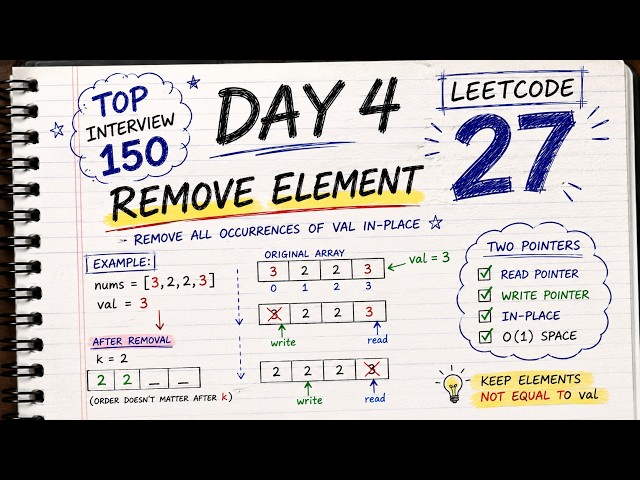 TOP
INTERVIEW
150
DAY 4
LEETCODE
27
REMOVE ELEMENT
REMOVE ALL OCCURRENCES OF VAL IN-PLACE
EXAMPLE:
nums = [3,2,2,3]
val = 3
AFTER REMOVAL
k = 2
2 2 _ _
(ORDER DOESN'T MATTER AFTER k)
ORIGINAL ARRAY
3 2 2 3
val = 3
0 1 2 3
3 2 2 3
write read
2 2 2 3
write read
TWO POINTERS
READ POINTER
WRITE POINTER
IN-PLACE
O(1) SPACE
KEEP ELEMENTS
NOT EQUAL TO val